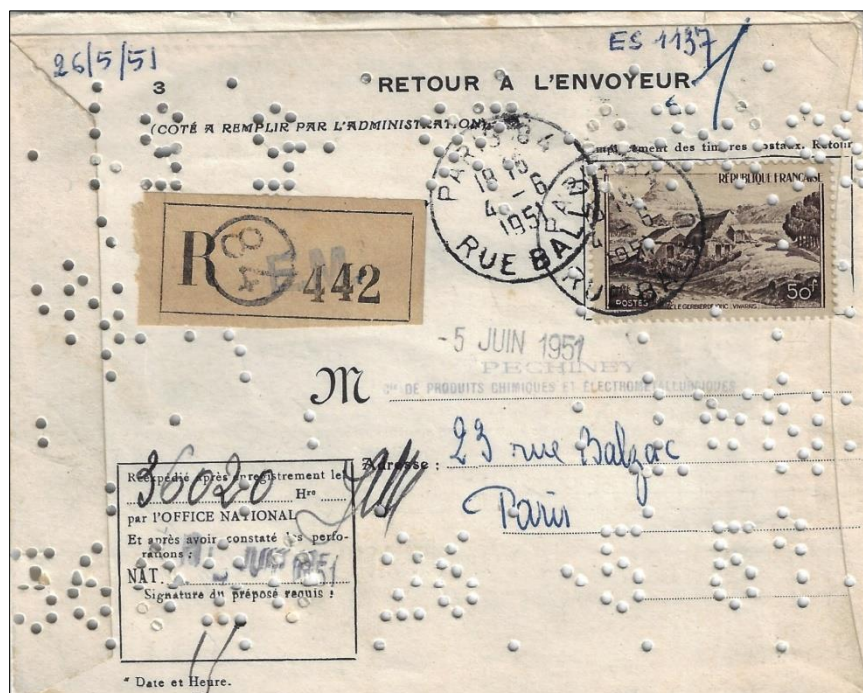 26/5/51
ES 1137
3
RETOUR A L'ENVOYEUR
(COTÉ A REMPLIR PAR L'ADMINISTRATION)
des timbres postaux. Retour
PARIS 84
18 15
4 - 6
1951
RUE BALZAC
RÉPUBLIQUE FRANÇAISE
POSTES
50f
R 84
442
- 5 JUIN 1951
PECHINEY
Cie DE PRODUITS CHIMIQUES ET ÉLECTROMÉTALLURGIQUES
M
Adresse : 23 rue Balzac
Paris
Réexpédié après enregistrement le
36020 Hre
par l'OFFICE NATIONAL
Et après avoir constaté les perfo-
rations :
NAT.
Signature du préposé requis :
* Date et Heure.